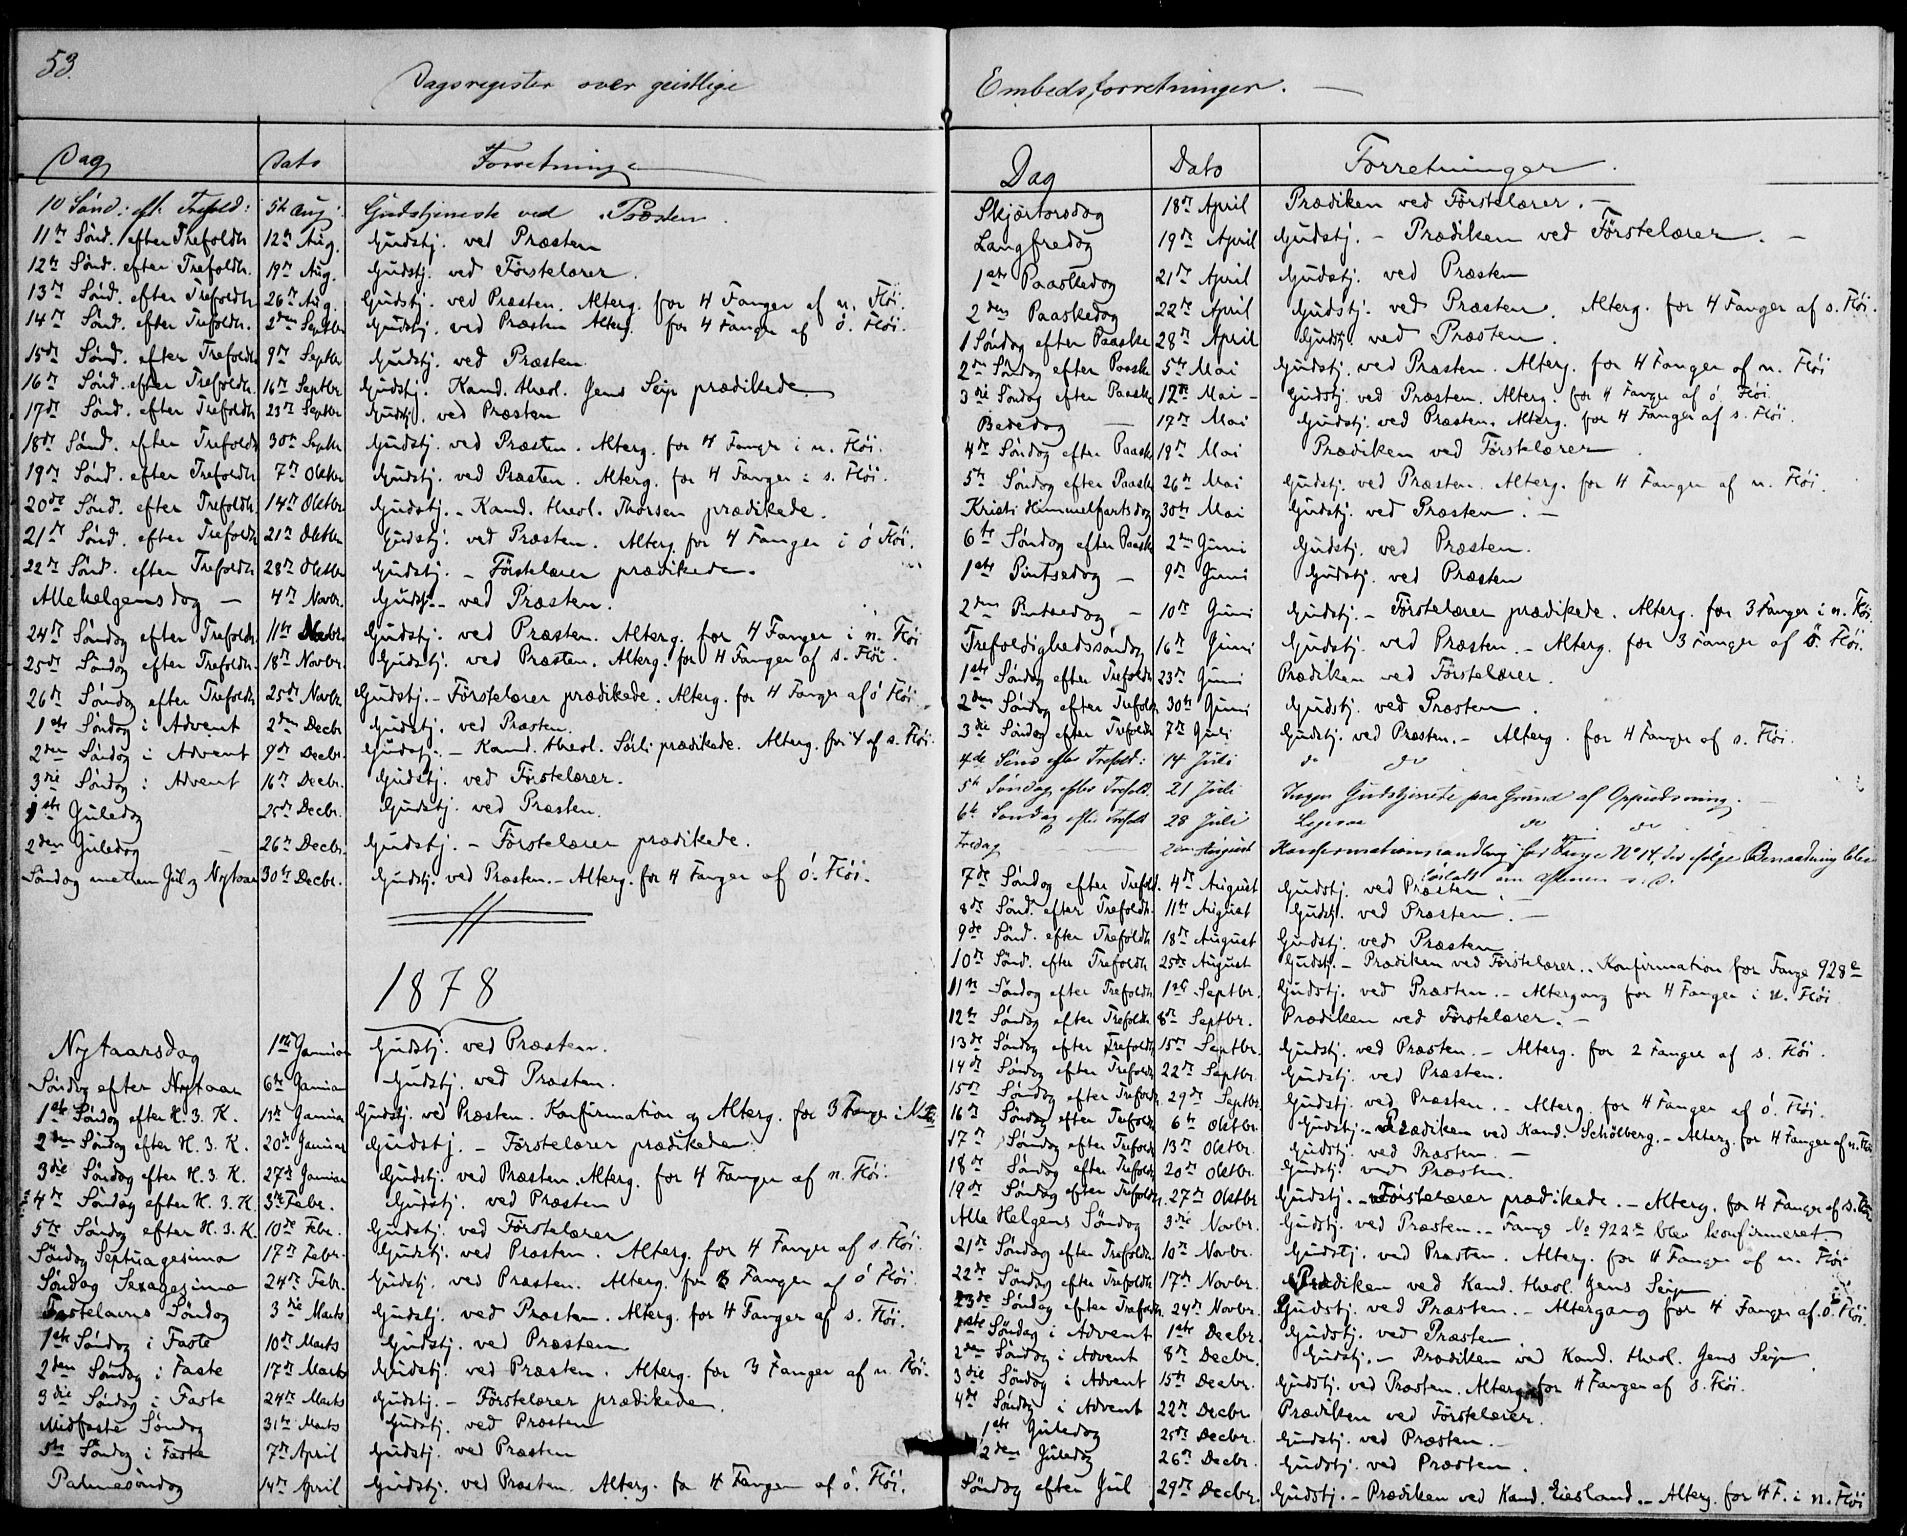 53.
Dagsregister over geistlige
Dag Dato Forretninger
10 Sönd: eft. Trefold: 5te Aug: Gudstjeneste ved Præsten.
11te Sönd. efter Trefoldh. 12te Aug. Gudstj. ved Præsten
12te Sönd. efter Trefoldh. 19de Aug. Gudstj. ved Förstelærer.
13de Sönd. efter Trefoldh. 26de Aug. Gudstj. ved Præsten. Alterg. for 4 Fanger af n. Flöi.
14de Sönd. efter Trefoldh. 2den Septbr Gudstj. ved Præsten Alterg. for 4 Fanger af ö. Flöi.
15de Sönd. efter Trefoldh. 9de Septbr Gudstj. ved Præsten.
16de Sönd. efter Trefoldh. 16de Septbr Gudstj. Kand. theol. Jens Seip prædikede.
17de Sönd. efter Trefoldh. 23de Septbr Gudstj. ved Præsten
18de Sönd. efter Trefoldh. 30te Septbr Gudstj. ved Præsten. Alterg. for 4 Fanger i n. Flöi.
19de Sönd. efter Trefoldh. 7de Oktbr Gudstj. ved Præsten. Alterg. for 4 Fanger i s. Flöi.
20de Sönd. efter Trefoldh. 14de Oktbr Gudstj. - Kand. theol. Thorsen prædikede.
21de Sönd. efter Trefoldh. 21de Oktbr Gudstj. ved Præsten. Alterg. for 4 Fanger i ö Flöi.
22de Sönd. efter Trefoldh. 28de Oktbr Gudstj. - Förstelærer prædikede.
Allehelgensdag - 4de Novbr. Gudstj. - ved Præsten.
24de Söndag efter Trefoldh. 11te Novbr. Gudstj. ved Præsten. Alterg. for 4 Fanger i n. Flöi
25de Söndag efter Trefoldh. 18de Novbr. Gudstj. ved Præsten. Alterg. for 4 Fanger af s. Flöi.
26de Söndag efter Trefoldh. 25de Novbr. Gudstj. - Förstelærer prædikede. Alterg. for 4 Fanger af ö Flöi
1ste Söndag i Advent 2den Decbr Gudstj. ved Præsten.
2den Söndag i Advent 9de Decbr. Gudstj. - Kand. theol. Sörli prædikede. Alterg. for 4 af s. Flöi.
3die Söndag i Advent 16de Decbr. Gudstj. ved Förstelærer.
1ste Juledag 25de Decbr. Gudstj. ved Præsten.
2den Juledag - 26de Decbr. Gudstj. - Förstelærer prædikede.
Söndag mellem Jul og Nytaar 30te Decbr. Gudstj. ved Præsten. - Alterg. for 4 Fanger af ö. Flöi.
1878
Nytaarsdag 1ste Januar Gudstj. ved Præsten.
Söndag efter Nytaar 6te Januar Gudstj. ved Præsten.
1ste Söndag efter H. 3. K. 13de Januar Gudstj. ved Præsten. Konfirmation og Alterg. for 3 Fanger i
2den Söndag efter H. 3. K. 20de Januar Gudstj. - Förstelærer prædikede.
3die Söndag efter H. 3. K. 27de Januar Gudstj. ved Præsten. Alterg. for 4 Fanger af n. Flöi.
4de Söndag efter H. 3. K. 3die Febr. Gudstj. ved Præsten
5te Söndag efter H. 3. K. 10de Febr. Gudstj. ved Förstelærer
Söndag Septuagesima 17de Febr. Gudstj. ved Præsten. Alterg. for 4 Fanger af s. Flöi.
Söndag Sexagesima 24de Febr. Gudstj. ved Præsten. Alterg. for Fanger af ö Flöi
Fastelavns Söndag 3die Marts Gudstj. ved Præsten. Alterg. for 4 Fanger af s. Flöi.
1ste Söndag i Faste 10de Marts Gudstj. ved Præsten
2den Söndag i Faste 17de Marts Gudstj. ved Præsten. Alterg. for 3 Fanger af n. Flöi.
3die Söndag i Faste 24de Marts Gudstj. - Förstelærer prædikede.
Midfaste Söndag 31te Marts Gudstj. ved Præsten
5te Söndag i Faste 7de April Gudstj. ved Præsten
Palmesöndag 14de April Gudstj. ved Præsten. Alterg. for 4 Fanger af ö. Flöi.
Embedsforretninger. -
Dag Dato Forretninger.
Skjærtorsdag 18de April Prædiken ved Förstelærer. -
Langfredag 19de April Gudstj. - Prædiken ved Förstelærer. -
1ste Paaskedag 21de April Gudstj. ved Præsten
2den Paaskedag 22de April Gudstj. ved Præsten. Alterg. for 4 Fanger af s. Flöi.
1 Söndag efter Paaske 28de April Gudstj. ved Præsten.
2den Söndag efter Paaske 5te Mai Gudstj. ved Præsten. Alterg. for 4 Fanger af n. Flöi
3die Söndag efter Paaske 12te Mai - Gudstj. ved Præsten. Alterg. for 4 Fanger af ö. Flöi.
Bededag - 17de Mai Gudstj. ved Præsten. Alterg. for 4 Fanger af s. Flöi.
4de Söndag efter Paaske 19de Mai Prædiken ved Förstelærer.
5te Söndag efter Paaske 26de Mai Gudstj. ved Præsten. Alterg. for 4 Fanger af n. Flöi.
Kristi Himmelfartsdag 30te Mai Gudstj. ved Præsten. -
6te Söndag efter Paaske 2den Juni Gudstj. ved Præsten.
1ste Pintsedag - 9de Juni Gudstj. ved Præsten
2den Pintsedag - 10de Juni Gudstj. - Förstelærer prædikede. Alterg. for 3 Fanger i n. Flöi.
Trefoldighedssöndag 16de Juni Gudstj. ved Præsten. - Alterg. for 3 Fanger af ö. Flöi.
1ste Söndag efter Trefoldh 23de Juni Prædiken ved Förstelærer.
2den Söndag efter Trefoldh 30te Juni Gudstj. ved Præsten.
3die Söndag efter Trefoldh 7de Juli Gudstj. ved Præsten. - Alterg. for 4 Fanger af s. Flöi.
4de Sönd efter Trefold: 14 Juli do do
5te Söndag efter Trefold. 21 Juli Ingen Gudstjeneste paa Grund af Oppudsning. -
6te Söndag efter Trefold 28 Juli Ligesaa do do
Fredag 2den August Konfirmationshandling for Fange No 14, der ifölge Benaadning blev
lösladt om Aftenen s. D.
7de Söndag efter Trefoldh. 4de August Gudstj. ved Præsten
8de Sönd. efter Trefoldh. 11te August Gudstj. ved Præsten. -
9de Sönd. efter Trefoldh 18de August Gudstj. ved Præsten
10de Sönd. efter Trefoldh 25de August Gudstj. - Prædiken ved Förstelærer. - Konfirmation for Fange 928
11te Söndag efter Trefoldh 1ste Septbr. Gudstj. ved Præsten. - Altergang for 4 Fanger i n. Flöi
12te Söndag efter Trefoldh 8de Septbr. Prædiken ved Förstelærer. -
13de Söndag efter Trefoldh 15de Septbr. Gudstj. ved Præsten. - Alterg. for 2 Fanger af s. Flöi.
14de Söndag efter Trefoldh 22de Septbr. Gudstj. ved Præsten.
15de Söndag efter Trefoldh 29de Septbr Gudstj. ved Præsten. - Alterg. for 4 Fanger af ö. Flöi.
16de Söndag efter Trefoldh 6te Oktbr. Gudstj. - Prædiken ved Kand. Schölberg. - Alterg. for 4 Fanger af n. Flöi
17de Söndag efter Trefoldh 13de Oktbr. Gudstj. ved Præsten. -
18de Söndag efter Trefoldh 20de Oktbr. Gudstj. ved Præsten.
19de Söndag efter Trefoldh. 27de Oktbr Gudstj. - Förstelærer prædikede. - Alterg. for 4 Fanger af s. Flöi
Alle Helgens Söndag 3die Novbr. Gudstj. ved Præsten. - Fange No 922 blev konfirmeret.
21de Söndag efter Trefoldh. 10de Novbr. Gudstj. ved Præsten. Alterg. for 4 Fanger af n. Flöi
22de Söndag efter Trefoldh 17de Novbr. Prædiken ved Kand. theol. Jens Seip
23de Söndag efter Trefoldh. 24de Novbr. Gudstj. ved Præsten. - Altergang for 4 Fanger af ö. Flöi.
1ste Söndag i Advent 1ste Decbr. Gudstj. ved Præsten
2den Söndag i Advent 8de Decbr. Gudstj. - Prædiken ved Kand. theol. Jens Seip
3die Söndag i Advent 15de Decbr. Gudstj. ved Præsten. Alterg for 4 Fanger af s. Flöi.
4de Söndag i Advent 22de Decbr. Prædiken ved Förstelærer.
1ste Juledag 25de Decbr. Gudstj. ved Præsten. -
2den Juledag 26de Decbr. Gudstj. ved Præsten.
Söndag efter Jul 29de Decbr. Gudstj. - Prædiken ved Kand. Eiesland. - Alterg. for 4 F. i n. Flöi